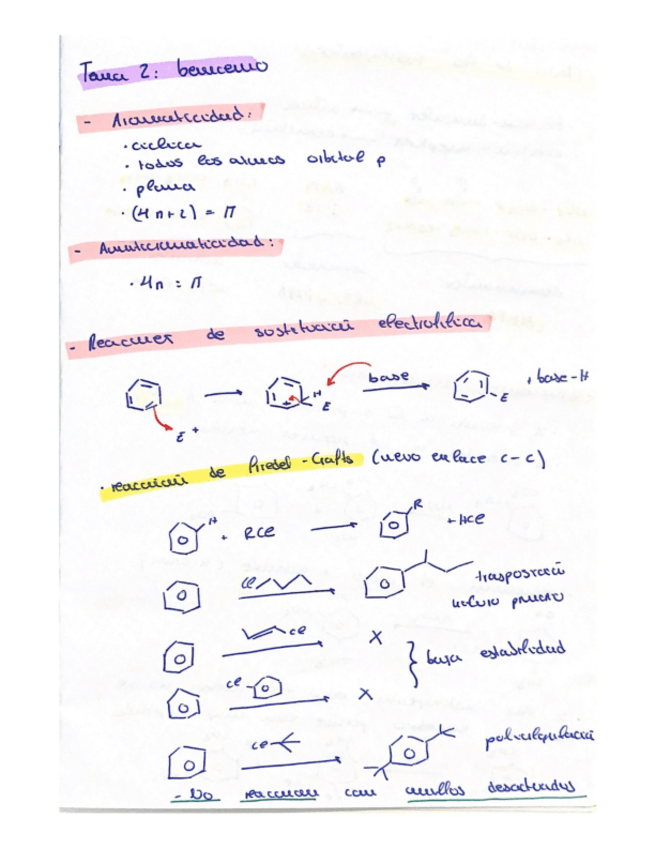 Tema 2: benceno
- Aromaticidad:
· cíclica
· todos los átomos orbital p
· plana
· (4n+2) = π
- Antiaromaticidad:
· 4n = π
- Reacciones de sustitución electrofílica
H
E
base
E
+ base-H
E+
· reacción de Friedel-Crafts (nuevo enlace C-C)
H
+ RCl
R
+ HCl
Cl
trasposición
hidruro
Cl
X
baja estabilidad
Cl
X
Cl
polialquilación
- No reaccionan con anillos desactivados